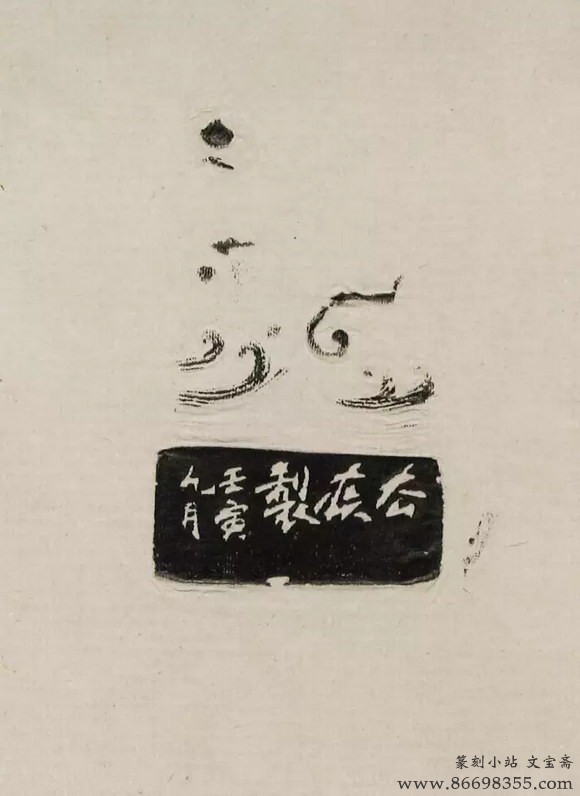 厺疾製
壬寅
九月
篆刻小站 文宝斋
www.86698355.com